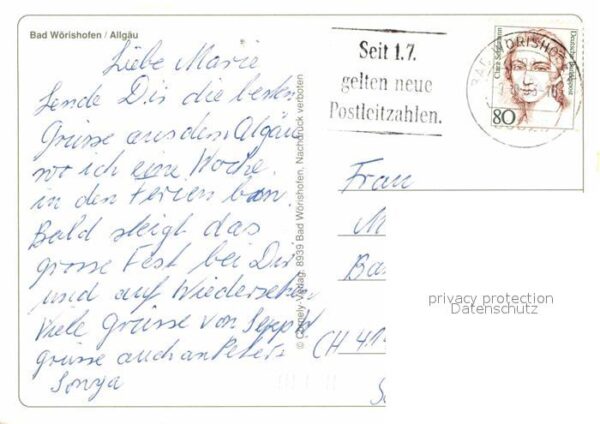 Bad Wörishofen / Allgäu
Liebe Marie
Sende Dir die besten
Grüsse aus dem Algäu
wo ich eine Woche
in den Ferien bin.
Bald steigt das
grosse Fest bei Dir
und auf Wiedersehen
Viele Grüsse von
grüsse auch an Peter
Sonya
© Cornely-Verlag, 8939 Bad Wörishofen, Nachdruck verboten
Seit 1.7.
gelten neue
Postleitzahlen.
BAD WÖRISHOFEN
Clara Schumann
Deutsche Bundespost
80
Frau
M
Ba
(CH 41
privacy protection
Datenschutz